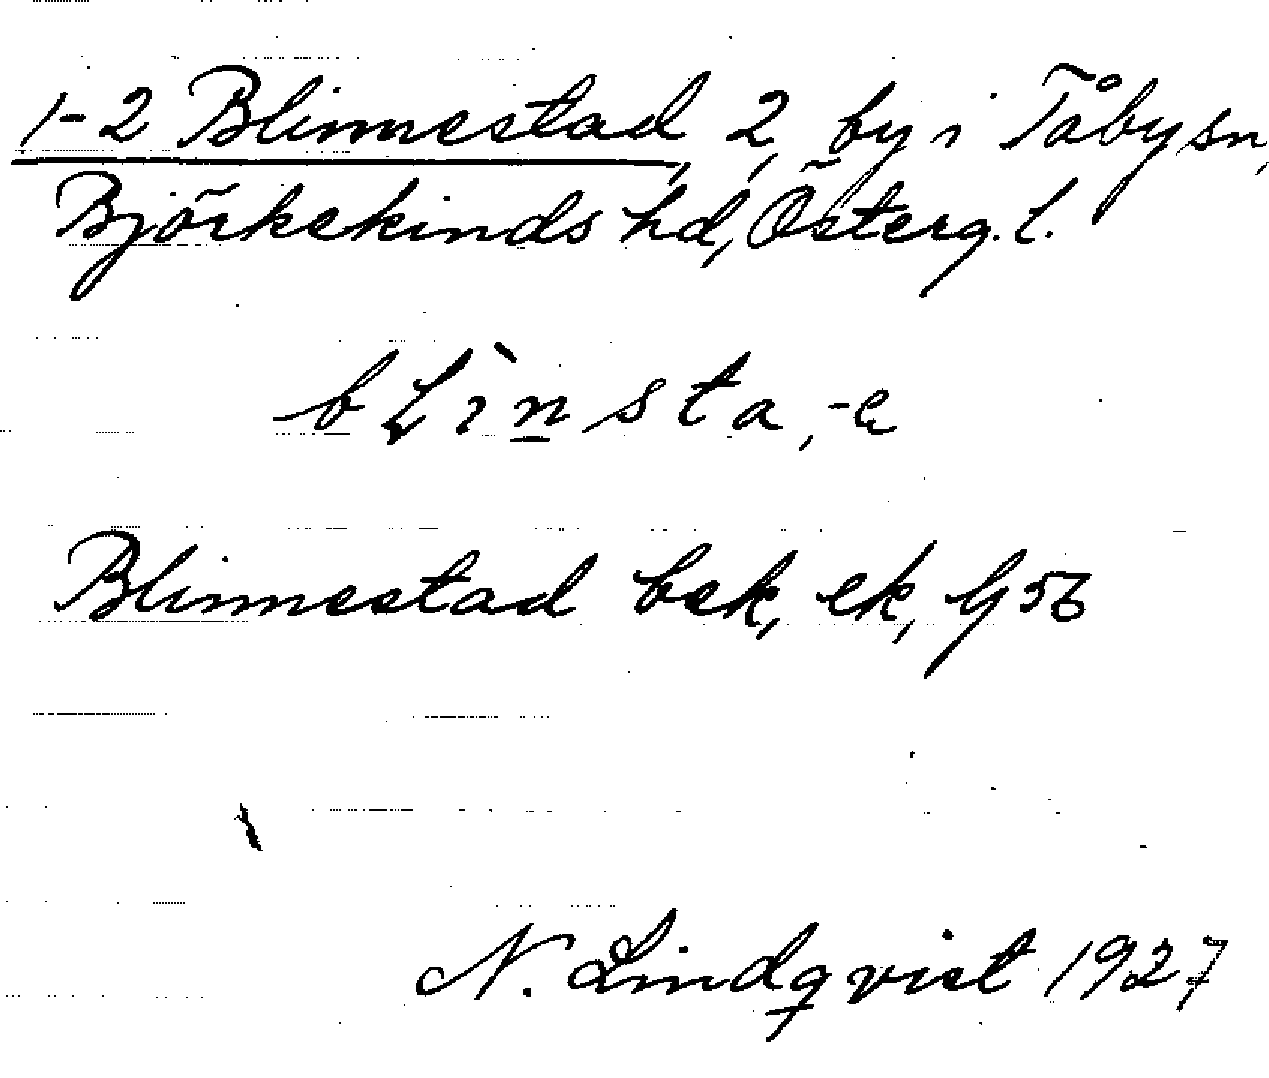 1-2 Blinnestad, 2, by i Tåby sn,
Björkekinds hd, Österg. l.
blìnsta, -e
Blinnestad bek, ek, G 56
N. Lindqvist 1927